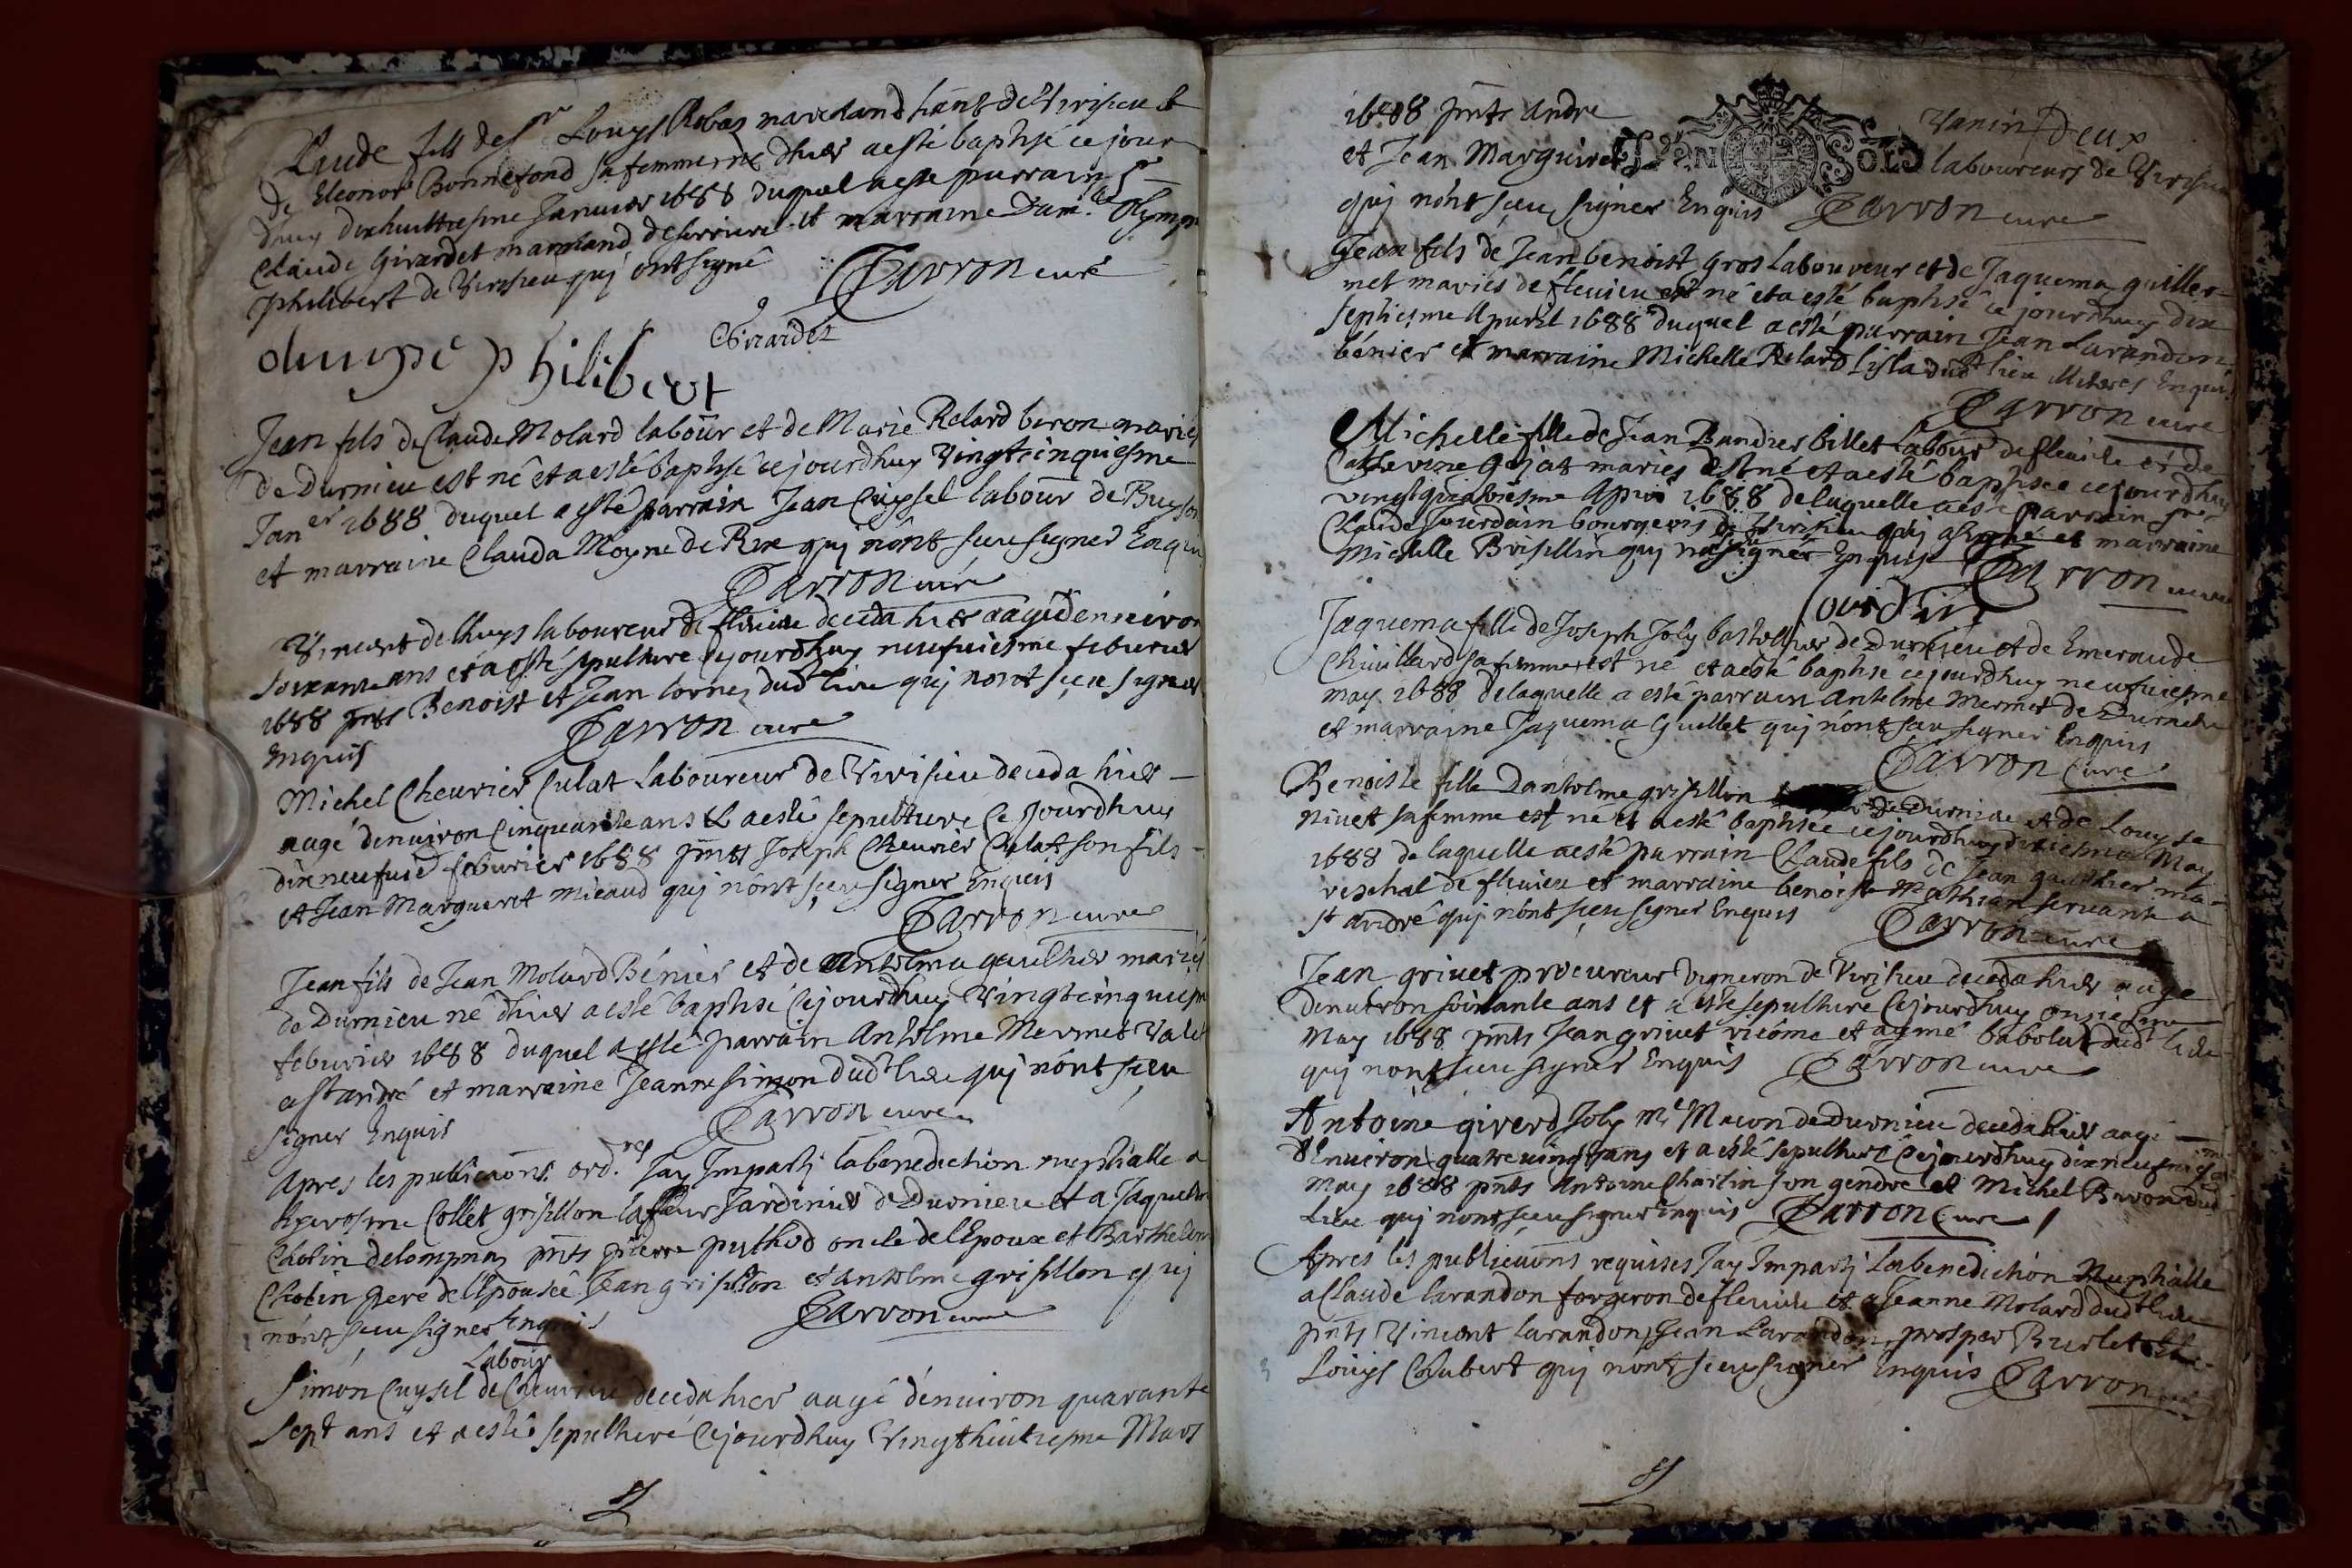 Claude fils de sr Louys Robas marchand hãnt de Virisieu et
de Eleonore Bonnefond sa femme né dhier a esté baptisé ce jour
dhuy dixhuittiesme Januier 1688 duquel a esté parrain sr
Claude Girardet marchand de et marraine Dam.lle Olympe
Philibert de Virisieu quj ont signé Carron curé
Girardet
olimpe philibert
Jean fils de Claude Molard labour et de Marie Relard beron mariés
de Durnieu est né et a esté baptisé cejourdhuy Vingtcinquiesme
Janer 1688 duquel a esté parrain Jean Cuysel labour de
et marraine Clauda Moyne de quj nont sceu signer Enquis
Carron curé
Vincent delhuys laboureur de fleuieu deceda hier aagé denuiron
soixante ans et a esté sepulturé cejourdhuy neufuiesme feburier
1688 pnts Benoist et Jean dud lieu quj nont sceu signer
Enquis Carron curé
Michel Cheurier Culat Laboureur de Virisieu deceda hier
aagé denuiron Cinquante ans et a esté sepulturé Ce jourdhuy
dixneufuie feburier 1688 pnts Joseph Cheurier Culat son fils
et Jean Margueret Micaud quj nont sceu signer Enquis
Carron curé
Jean fils de Jean Molard Bénier et de Antelma gaulthier mariés
de Durnieu né dhier a esté baptisé Cejourdhuy Vingtcinquiesme
feburier 1688 duquel a esté parrain Antelme Mermet Valet
a st andré et marraine Jeanne Simon dud lieu quj nont sceu
signer Enquis Carron curé
Apres les publicaõns ord.res Jay Imparti la benediction nuptialle a
hyerosme Collet grisillon Jardinier de Durnieu et a Jaqueline
Chotin delompnas pnts pierre puthod oncle de lEpoux et Barthelemy
Chotin pere de lEpousée Jean grisillon et antelme grisillon quj
nont sceu signer Enquis Carron curé
Labour
Simon Cuysel de Cheurieu deceda hier aagé denuiron quarante
sept ans et a esté sepulturé Cejourdhuy Vingthuitiesme Mars
1688 pnts Andre Vanin Deux
et Jean Margueret laboureurs de Virisieu
DEN SOLD
quj nont sceu signer Enquis Carron curé
Jean fils de Jean benoist gros laboureur et de Jaquema guiller-
met mariés de fleuieu est né et a esté baptisé ce jourdhuy dix
septiesme Apuril 1688 duquel a esté parrain Jean Larandon
bénier et marraine Michelle Relard dud lieu Enquis
Carron curé
Michelle fille de Jean billet Labour de fleuieu et de
Catherine mariés est né et a esté baptisée cejourdhuy
vingt 1688 de laquelle a esté parrain sr
Claude Jourdain bourgeois de Virisieu quj a signé et marraine
Michelle Brisillin quj na signer Enquise Carron curé
Jourdain
Jaquema fille de Joseph Joly de Durnieu et de Emeraude
Chuillard sa femme est né et a esté baptisé cejourdhuy neufuiesme
may 1688 de laquelle a esté parrain antelme Mermet de Durnieu
et marraine Jaquema Guillet quj nont sceu signer Enquis
Carron Curé
Benoiste fille Dantelme grisillon de Durnieu et de Louyse
niuet sa femme est né et a esté baptisée cejourdhuy dixiesme May
1688 de laquelle a esté parrain Claude fils de Jean gaulthier ma-
reschal de fleuieu et marraine benoiste Mathian seruante a
st andré quj nont sceu signer Enquis Carron curé
Jean griuet procureur Vigneron de Virisieu deceda hier aagé
denuiron soixante ans et a esté sepulturé Cejourdhuy onziesme
May 1688 pnts Jean griuet et aymé babolat dud lieu
quj nont sceu signer Enquis Carron curé
Antoine girerd Joly Me Macon de Durnieu deceda hier aagé
dEnuiron quatreuingt ans et a esté sepulturé Cejourdhuy dixneufuiesme
may 1688 pnts Antoine Charlin son gendre et Michel Beron dud
Lieu quj nont sceu signer Enquis Carron Curé
Apres les publicaõns requises Jay Imparti La benediction Nuptialle
a Claude Larandon forgeron de fleuieu et a Jeanne Molard dud lieu
pnts Vincent Larandon Jean Larandon prosper Burlet et
Louys Chubert quj nont sceu signer Enquis Carron curé